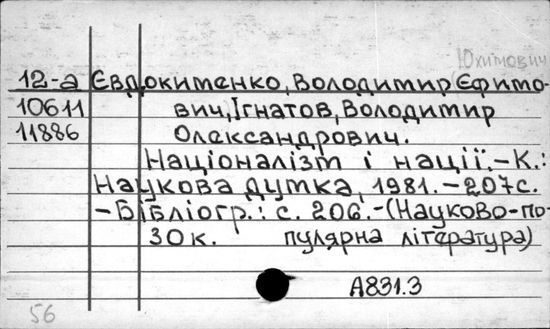 Юхимович
12-а Євдокименко, Володимир Єфимо-
10611 вич, Ігнатов, Володимир
11886 Олександрович.
Націоналізм і нації. – К.:
Наукова думка, 1981. – 207с.
– Бібліогр.: с. 206. – (Науково-по-
30к. пулярна література)
А831.3
56